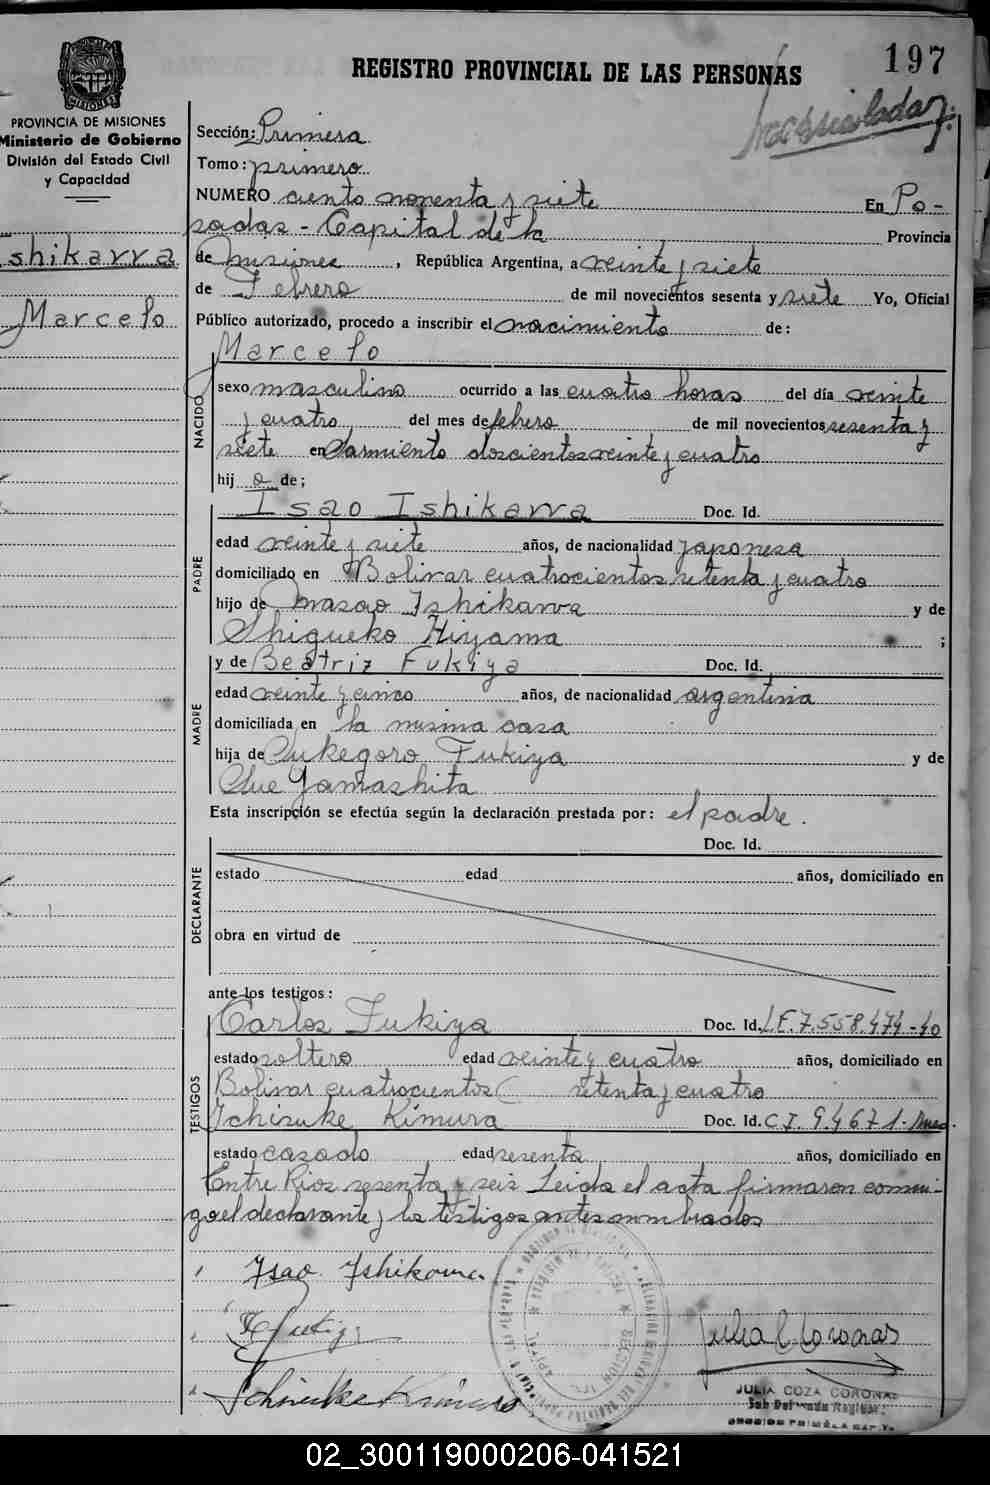 197
REGISTRO PROVINCIAL DE LAS PERSONAS
PROVINCIA DE MISIONES
Ministerio de Gobierno
División del Estado Civil
y Capacidad
shikawa
Marcelo
Sección: Primera
Tomo: primero
NUMERO ciento noventa y siete En Po-
sadas - Capital de la Provincia
de Misiones, República Argentina, a veinte y siete
de Febrero de mil novecientos sesenta y siete Yo, Oficial
Público autorizado, procedo a inscribir el nacimiento de:
Marcelo
NACIDO
sexo masculino ocurrido a las cuatro horas del día veinte
y cuatro del mes de febrero de mil novecientos sesenta y
siete en Sarmiento doscientos veinte y cuatro
hijo de;
Isao Ishikawa Doc. Id.
PADRE
edad veinte y siete años, de nacionalidad japonesa
domiciliado en Bolivar cuatrocientos setenta y cuatro
hijo de Masao Ishikawa y de
Shigueko Hiyama ;
y de Beatriz Fukiya Doc. Id.
MADRE
edad veinte y cinco años, de nacionalidad argentina
domiciliada en la misma casa
hija de Sukegoro Fukiya y de
Sue Yamashita
Esta inscripción se efectúa según la declaración prestada por: el padre.
Doc. Id.
DECLARANTE
estado edad años, domiciliado en
obra en virtud de
ante los testigos:
Carlos Fukiya Doc. Id. L.E. 7.558.474-40
TESTIGOS
estado soltero edad veinte y cuatro años, domiciliado en
Bolivar cuatrocientos setenta y cuatro
Ichisuke Kimura Doc. Id. C.I. 9.467
estado casado edad sesenta años, domiciliado en
Entre Rios sesenta y seis Leida el acta firmaron conmi-
go el declarante y los testigos antes nombrados
Isao Ishikawa
Fukiya
Ichisuke Kimura
Julia C Coronas
JULIA COZA CORONAS
02_300119000206-041521